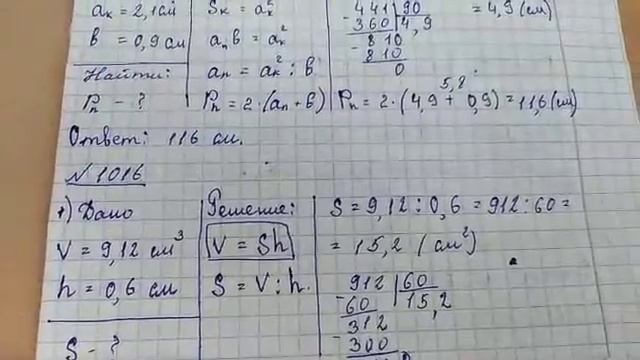 aк = 2,1 см
в = 0,9 см
Найти:
Pп - ?
Sк = aк²
aпв = aк²
aп = aк² : в
Pп = 2·(aп + в)
441 90
- 360 4,9
- 810
810
0
= 4,9 (см)
5,8
Pп = 2·(4,9 + 0,9) = 11,6 (см)
Ответ: 116 см.
№ 1016
1) Дано
V = 9,12 см³
h = 0,6 см
S - ?
Решение:
V = Sh
S = V : h.
S = 9,12 : 0,6 = 912 : 60 =
= 15,2 (см²)
912 60
- 60 15,2
312
- 300